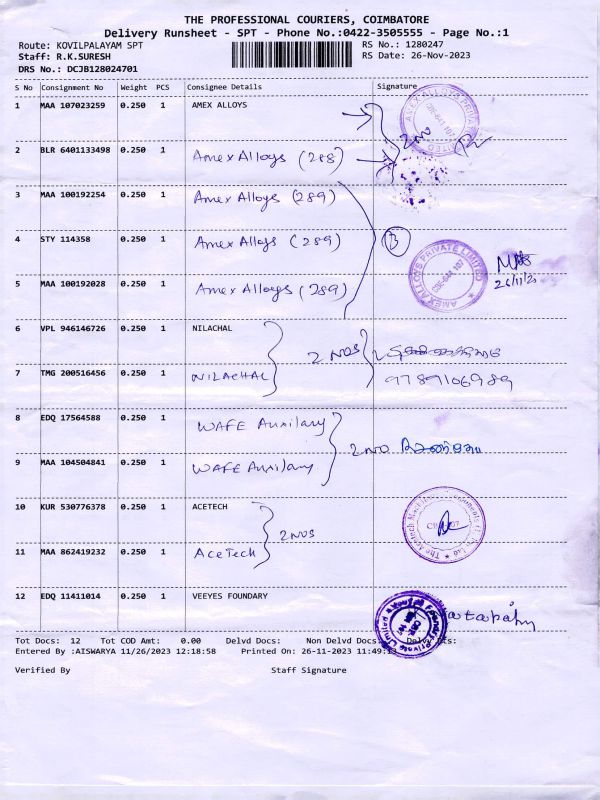 THE PROFESSIONAL COURIERS, COIMBATORE
Delivery Runsheet - SPT - Phone No.:0422-3505555 - Page No.:1
Route: KOVILPALAYAM SPT
Staff: R.K.SURESH
DRS No.: DCJB128024701
RS No.: 1280247
RS Date: 26-Nov-2023
S No Consignment No Weight PCS Consignee Details Signature
1 MAA 107023259 0.250 1 AMEX ALLOYS
2 NO
2 BLR 6401133498 0.250 1 Amex Alloys (288)
3 MAA 100192254 0.250 1 Amex Alloys (289)
4 STY 114358 0.250 1 Amex Alloys (289) 3
AMEX ALLOYS PRIVATE LIMITED
CBE-641 107
5 MAA 100192028 0.250 1 Amex Alloys (289)
6 VPL 946146726 0.250 1 NILACHAL
2 NOS
7 TMG 200516456 0.250 1 NILACHAL 9789106989
8 EDQ 17564588 0.250 1 WAFE Auxilary
2 NO
9 MAA 104504841 0.250 1 WAFE Auxilary
10 KUR 530776378 0.250 1 ACETECH
2 NOS
11 MAA 862419232 0.250 1 AceTech
12 EDQ 11411014 0.250 1 VEEYES FOUNDARY
Tot Docs: 12 Tot COD Amt: 0.00 Delvd Docs: Non Delvd Docs: Delvy Pcs:
Entered By :AISWARYA 11/26/2023 12:18:58 Printed On: 26-11-2023
Verified By Staff Signature